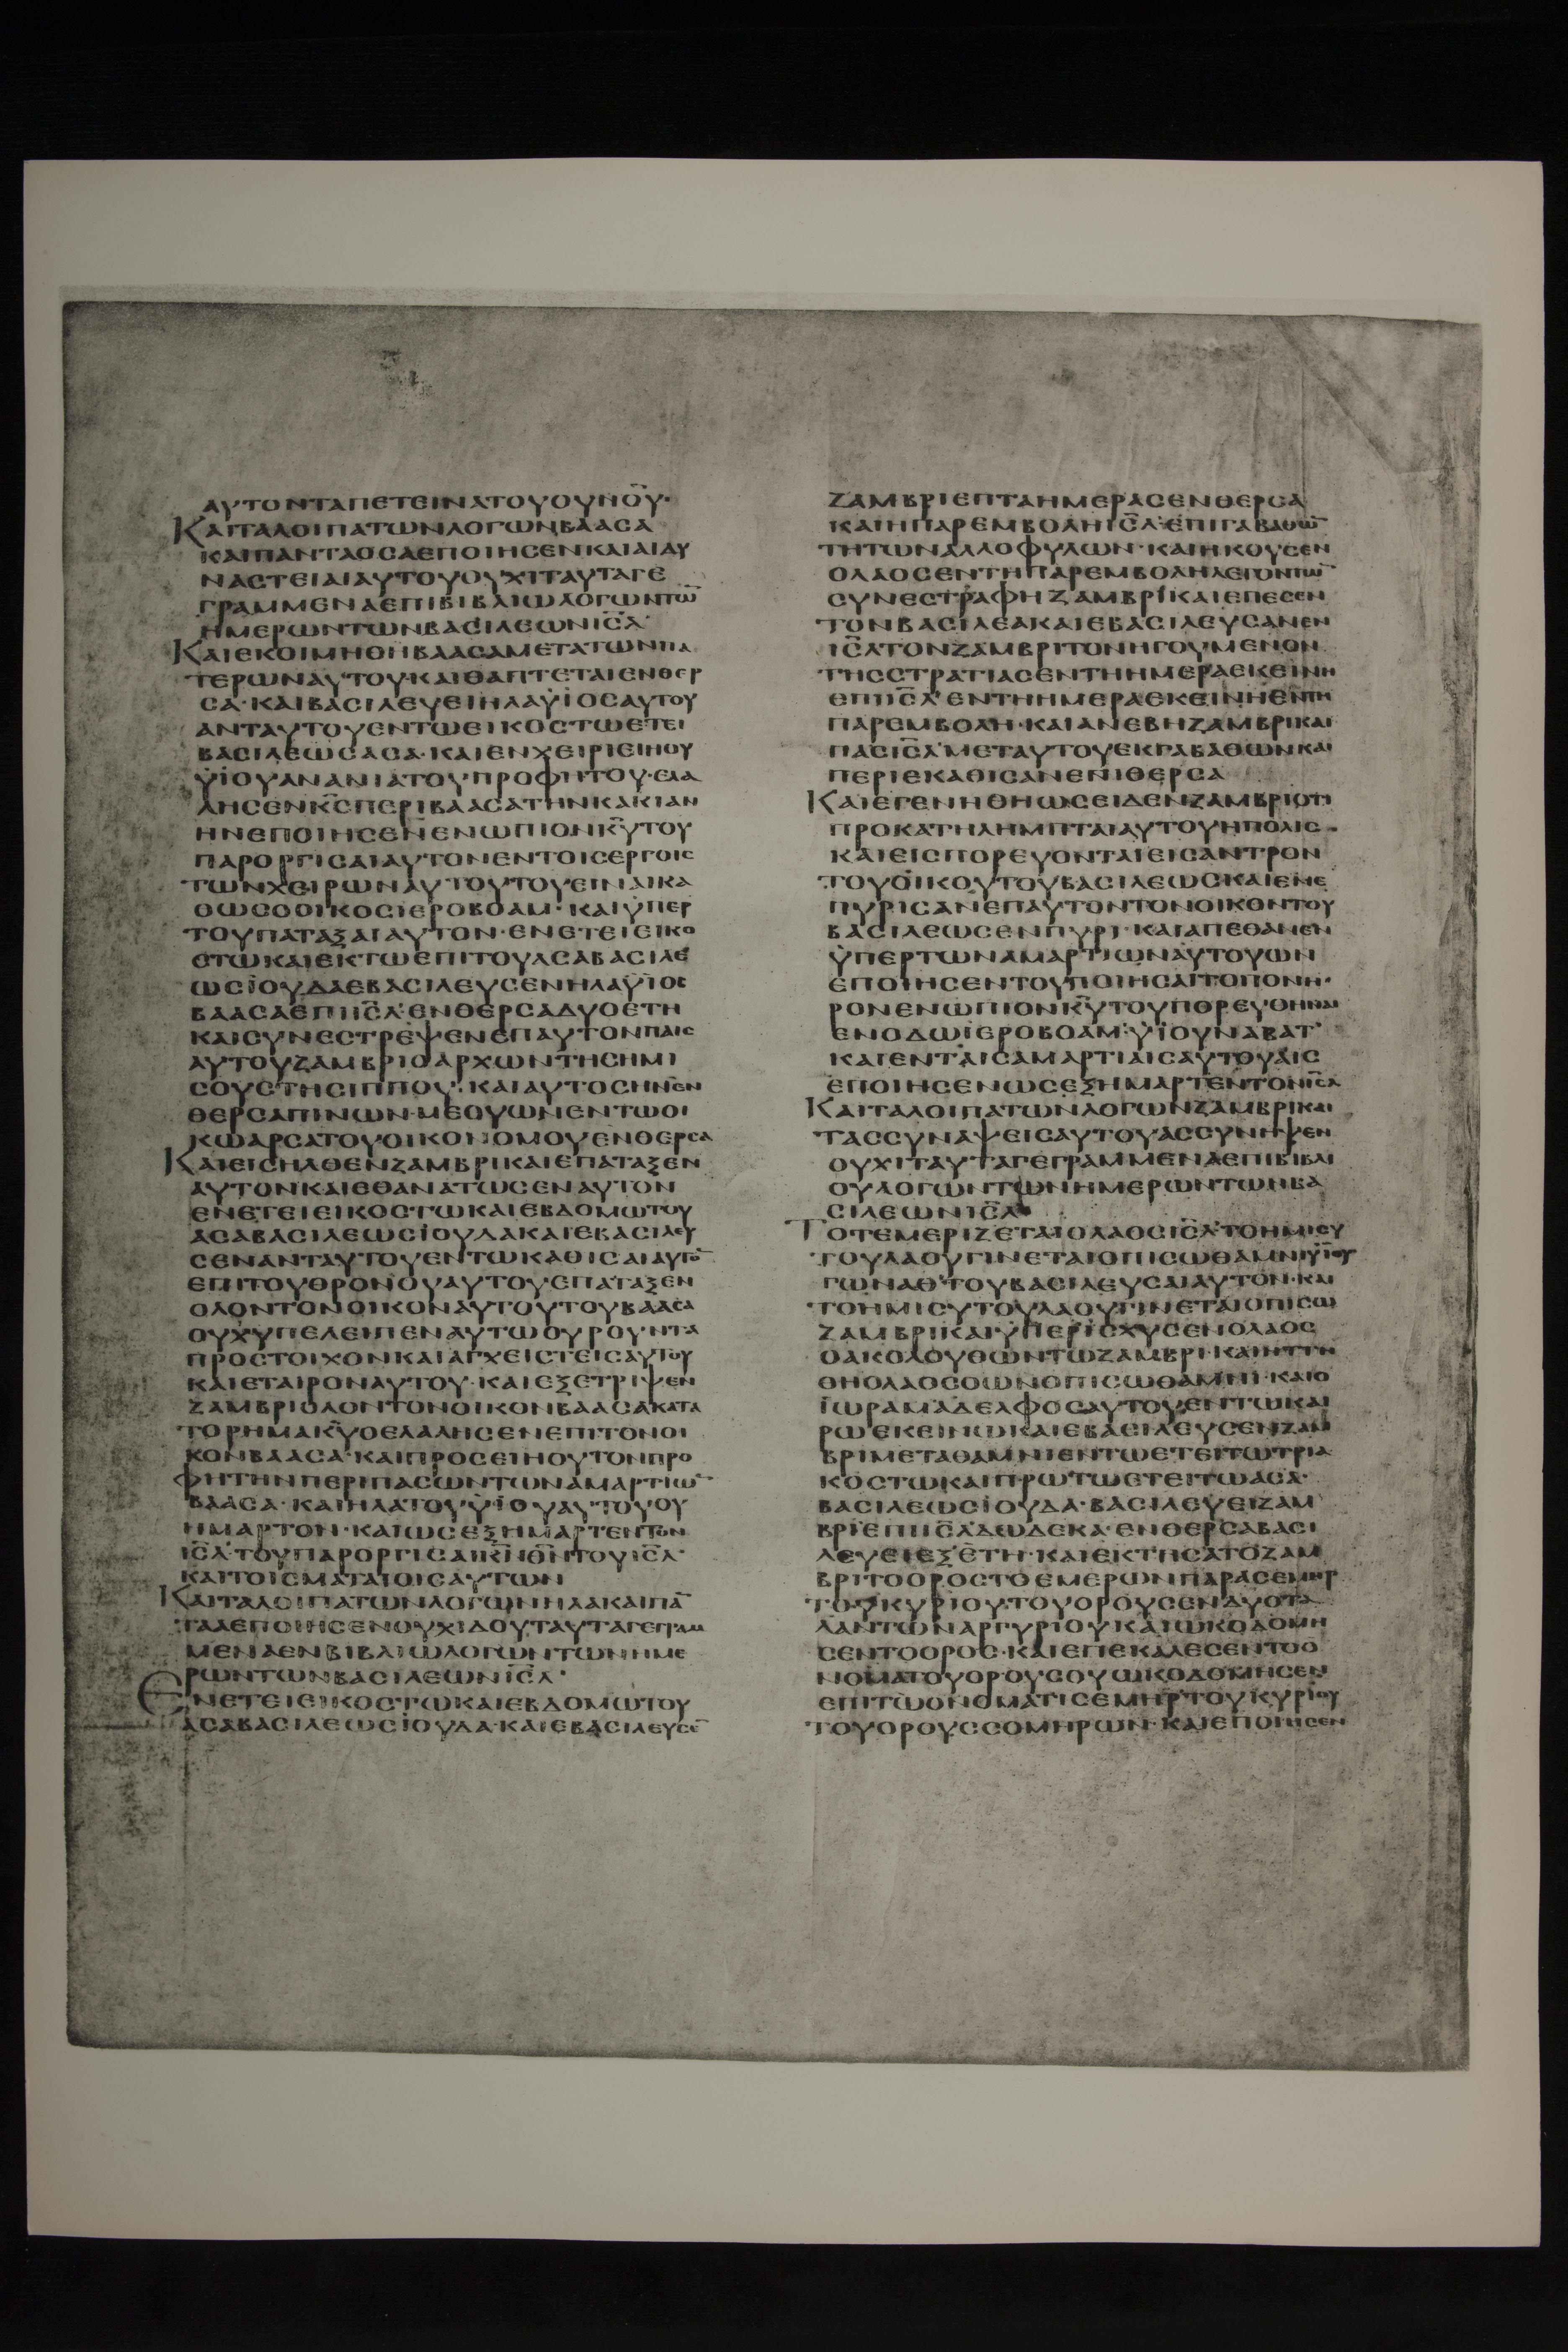 ΑΥΤΟΝΤΑΠΕΤΕΙΝΑΤΟΥΟΥΝΟΥ·
ΚΑΙΤΑΛΟΙΠΑΤΩΝΛΟΓΩΝΒΑΑΣΑ
ΚΑΙΠΑΝΤΑΟΣΑΕΠΟΙΗΣΕΝΚΑΙΑΙΔΥ
ΝΑΣΤΕΙΑΙΑΥΤΟΥΟΥΧΙΤΑΥΤΑΓΕ
ΓΡΑΜΜΕΝΑΕΠΙΒΙΒΛΙΩΛΟΓΩΝΤΩ̅
ΗΜΕΡΩΝΤΩΝΒΑΣΙΛΕΩΝΙ̅Σ̅Λ̅
ΚΑΙΕΚΟΙΜΗΘΗΒΑΑΣΑΜΕΤΑΤΩΝΠΑ
ΤΕΡΩΝΑΥΤΟΥΚΑΙΘΑΠΤΕΤΑΙΕΝΘΕΡ
ΣΑ·ΚΑΙΒΑΣΙΛΕΥΕΙΗΛΑΫΙΟΣΑΥΤΟΥ
ΑΝΤΑΥΤΟΥΕΝΤΩΕΙΚΟΣΤΩΕΤΕΙ
ΒΑΣΙΛΕΩΣΑΣΑ·ΚΑΙΕΝΧΕΙΡΙΕΙΗΟΥ
ΫΙΟΥΑΝΑΝΙΑΤΟΥΠΡΟΦΗΤΟΥ·ΕΛΑ
ΛΗΣΕΝΚ̅Σ̅ΠΕΡΙΒΑΑΣΑΤΗΝΚΑΚΙΑΝ
ΗΝΕΠΟΙΗΣΕΝΕΝΩΠΙΟΝΚ̅Υ̅ΤΟΥ
ΠΑΡΟΡΓΙΣΑΙΑΥΤΟΝΕΝΤΟΙΣΕΡΓΟΙΣ
ΤΩΝΧΕΙΡΩΝΑΥΤΟΥΤΟΥΕΙΝΑΙΚΑ
ΘΩΣΟΟΙΚΟΣΙΕΡΟΒΟΑΜ·ΚΑΙΫΠΕΡ
ΤΟΥΠΑΤΑΞΑΙΑΥΤΟΝ·ΕΝΕΤΕΙΕΙΚΟ
ΣΤΩΚΑΙΕΚΤΩΕΠΙΤΟΥΑΣΑΒΑΣΙΛΕ
ΩΣΪΟΥΔΑΕΒΑΣΙΛΕΥΣΕΝΗΛΑΫΙΟΣ
ΒΑΑΣΑΕΠΙΙ̅Σ̅Λ̅ΕΝΘΕΡΣΑΔΥΟΕΤΗ
ΚΑΙΣΥΝΕΣΤΡΕΨΕΝΕΠΑΥΤΟΝΠΑΙΣ
ΑΥΤΟΥΖΑΜΒΡΙΟΑΡΧΩΝΤΗΣΗΜΙ
ΣΟΥΣΤΗΣΙΠΠΟΥ·ΚΑΙΑΥΤΟΣΗΝΕΝ
ΘΕΡΣΑΠΙΝΩΝ·ΜΕΘΥΩΝΕΝΤΩΟΙ
ΚΩΑΡΣΑΤΟΥΟΙΚΟΝΟΜΟΥΕΝΘΕΡΣΑ
ΚΑΙΕΙΣΗΛΘΕΝΖΑΜΒΡΙΚΑΙΕΠΑΤΑΞΕΝ
ΑΥΤΟΝΚΑΙΕΘΑΝΑΤΩΣΕΝΑΥΤΟΝ
ΕΝΕΤΕΙΕΙΚΟΣΤΩΚΑΙΕΒΔΟΜΩΤΟΥ
ΑΣΑΒΑΣΙΛΕΩΣΪΟΥΔΑΚΑΙΕΒΑΣΙΛΕΥ
ΣΕΝΑΝΤΑΥΤΟΥΕΝΤΩΚΑΘΙΣΑΙΑΥΤΟ̅
ΕΠΙΤΟΥΘΡΟΝΟΥΑΥΤΟΥΕΠΑΤΑΞΕΝ
ΟΛΟΝΤΟΝΟΙΚΟΝΑΥΤΟΥΤΟΥΒΑΑΣΑ
ΟΥΧΥΠΕΛΕΙΠΕΝΑΥΤΩΟΥΡΟΥΝΤΑ
ΠΡΟΣΤΟΙΧΟΝΚΑΙΑΓΧΕΙΣΤΕΙΣΑΥΤΟΥ
ΚΑΙΕΤΑΙΡΟΝΑΥΤΟΥ·ΚΑΙΕΞΕΤΡΙΨΕΝ
ΖΑΜΒΡΙΟΛΟΝΤΟΝΟΙΚΟΝΒΑΑΣΑΚΑΤΑ
ΤΟΡΗΜΑΚ̅Υ̅ΟΕΛΑΛΗΣΕΝΕΠΙΤΟΝΟΙ
ΚΟΝΒΑΑΣΑ·ΚΑΙΠΡΟΣΕΙΗΟΥΤΟΝΠΡΟ
ΦΗΤΗΝΠΕΡΙΠΑΣΩΝΤΩΝΑΜΑΡΤΙΩ̅
ΒΑΑΣΑ·ΚΑΙΗΛΑΤΟΥΫΙΟΥΑΥΤΟΥΟΥ
ΗΜΑΡΤΟΝ·ΚΑΙΩΣΕΞΗΜΑΡΤΕΝΤΟΝ
Ι̅Σ̅Λ̅·ΤΟΥΠΑΡΟΡΓΙΣΑΙΚ̅Ν̅Θ̅Ν̅ΤΟΥΙ̅Σ̅Λ̅
ΚΑΙΤΟΙΣΜΑΤΑΙΟΙΣΑΥΤΩΝ
ΚΑΙΤΑΛΟΙΠΑΤΩΝΛΟΓΩΝΗΛΑΚΑΙΠΑ̅
ΤΑΑΕΠΟΙΗΣΕΝΟΥΧΙΔΟΥΤΑΥΤΑΓΕΓΡΑΜ
ΜΕΝΑΕΝΒΙΒΛΙΩΛΟΓΩΝΤΩΝΗΜΕ
ΡΩΝΤΩΝΒΑΣΙΛΕΩΝΙ̅Σ̅Λ̅·
ΕΝΕΤΕΙΕΙΚΟΣΤΩΚΑΙΕΒΔΟΜΩΤΟΥ
ΑΣΑΒΑΣΙΛΕΩΣΪΟΥΔΑ·ΚΑΙΕΒΑΣΙΛΕΥΣΕ̅
ΖΑΜΒΡΙΕΠΤΑΗΜΕΡΑΣΕΝΘΕΡΣΑ
ΚΑΙΗΠΑΡΕΜΒΟΛΗΙ̅Σ̅Λ̅ΕΠΙΓΑΒΑΘΩ̅
ΤΗΤΩΝΑΛΛΟΦΥΛΩΝ·ΚΑΙΗΚΟΥΣΕΝ
ΟΛΑΟΣΕΝΤΗΠΑΡΕΜΒΟΛΗΛΕΓΟΝΤΩ̅
ΣΥΝΕΣΤΡΑΦΗΖΑΜΒΡΙΚΑΙΕΠΕΣΕΝ
ΤΟΝΒΑΣΙΛΕΑΚΑΙΕΒΑΣΙΛΕΥΣΑΝΕΝ
Ι̅Σ̅Λ̅ΤΟΝΖΑΜΒΡΙΤΟΝΗΓΟΥΜΕΝΟΝ
ΤΗΣΣΤΡΑΤΙΑΣΕΝΤΗΗΜΕΡΑΕΚΕΙΝΗ
ΕΠΙΙ̅Σ̅Λ̅ΕΝΤΗΗΜΕΡΑΕΚΕΙΝΗΕΝΤΗ
ΠΑΡΕΜΒΟΛΗ·ΚΑΙΑΝΕΒΗΖΑΜΒΡΙΚΑΙ
ΠΑΣΙ̅Σ̅Λ̅ΜΕΤΑΥΤΟΥΕΚΓΑΒΑΘΩΝΚΑΙ
ΠΕΡΙΕΚΑΘΙΣΑΝΕΝΙΘΕΡΣΑ
ΚΑΙΕΓΕΝΗΘΗΩΣΕΙΔΕΝΖΑΜΒΡΙΟΤΙ
ΠΡΟΚΑΤΗΛΗΜΠΤΑΙΑΥΤΟΥΗΠΟΛΙΣ·
ΚΑΙΕΙΣΠΟΡΕΥΟΝΤΑΙΕΙΣΑΝΤΡΟΝ
ΤΟΥΟΙΚΟΥΤΟΥΒΑΣΙΛΕΩΣΚΑΙΕΝΕ
ΠΥΡΙΣΑΝΕΠΑΥΤΟΝΤΟΝΟΙΚΟΝΤΟΥ
ΒΑΣΙΛΕΩΣΕΝΠΥΡΙ·ΚΑΙΑΠΕΘΑΝΕΝ
ΫΠΕΡΤΩΝΑΜΑΡΤΙΩΝΑΥΤΟΥΩΝ
ΕΠΟΙΗΣΕΝΤΟΥΠΟΙΗΣΑΙΤΟΠΟΝΗ·
ΡΟΝΕΝΩΠΙΟΝΚ̅Υ̅ΤΟΥΠΟΡΕΥΘΗΝΑΙ
ΕΝΟΔΩΪΕΡΟΒΟΑΜ·ΫΙΟΥΝΑΒΑΤ
ΚΑΙΕΝΤΑΙΣΑΜΑΡΤΙΑΙΣΑΥΤΟΥΑΙΣ
ΕΠΟΙΗΣΕΝΩΣΕΞΗΜΑΡΤΕΝΤΟΝΙ̅Σ̅Λ̅
ΚΑΙΤΑΛΟΙΠΑΤΩΝΛΟΓΩΝΖΑΜΒΡΙΚΑΙ
ΤΑΣΣΥΝΑΨΕΙΣΑΥΤΟΥΑΣΣΥΝΗΨΕΝ
ΟΥΧΙΤΑΥΤΑΓΕΓΡΑΜΜΕΝΑΕΠΙΒΙΒΛΙ
ΟΥΛΟΓΩΝΤΩΝΗΜΕΡΩΝΤΩΝΒΑ
ΣΙΛΕΩΝΙ̅Σ̅Λ̅
ΤΟΤΕΜΕΡΙΖΕΤΑΙΟΛΑΟΣΙ̅Σ̅Λ̅ΤΟΗΜΙΣΥ
ΤΟΥΛΑΟΥΓΙΝΕΤΑΙΟΠΙΣΩΘΑΜΝΙΫΙΟΥ
ΓΩΝΑΘ·ΤΟΥΒΑΣΙΛΕΥΣΑΙΑΥΤΟΝ·ΚΑΙ
ΤΟΗΜΙΣΥΤΟΥΛΑΟΥΓΙΝΕΤΑΙΟΠΙΣΩ
ΖΑΜΒΡΙΚΑΙΫΠΕΡΙΣΧΥΣΕΝΟΛΑΟΣ
ΟΑΚΟΛΟΥΘΩΝΤΩΖΑΜΒΡΙ·ΚΑΙΗΤΤΗ
ΘΗΟΛΑΟΣΟΩΝΟΠΙΣΩΘΑΜΝΙ·ΚΑΙΟ
ΪΩΡΑΜΑΔΕΛΦΟΣΑΥΤΟΥΕΝΤΩΚΑΙ
ΡΩΕΚΕΙΝΩΚΑΙΕΒΑΣΙΛΕΥΣΕΝΖΑΜ
ΒΡΙΜΕΤΑΘΑΜΝΙΕΝΤΩΕΤΕΙΤΩΤΡΙΑ
ΚΟΣΤΩΚΑΙΠΡΩΤΩΕΤΕΙΤΩΑΣΑ·
ΒΑΣΙΛΕΩΣΪΟΥΔΑ·ΒΑΣΙΛΕΥΕΙΖΑΜ
ΒΡΙΕΠΙΙ̅Σ̅Λ̅ΔΩΔΕΚΑ·ΕΝΘΕΡΣΑΒΑΣΙ
ΛΕΥΕΙΕΞΕΤΗ·ΚΑΙΕΚΤΗΣΑΤΟΖΑΜ
ΒΡΙΤΟΟΡΟΣΤΟΕΜΕΡΩΝΠΑΡΑΣΕΜΗΡ
ΤΟΥΚΥΡΙΟΥΤΟΥΟΡΟΥΣΕΝΔΥΟΤΑ
ΛΑΝΤΩΝΑΡΓΥΡΙΟΥΚΑΙΩΚΟΔΟΜΗ
ΣΕΝΤΟΟΡΟΣ·ΚΑΙΕΠΕΚΑΛΕΣΕΝΤΟΟ
ΝΟΜΑΤΟΥΟΡΟΥΣΟΥΩΚΟΔΟΜΗΣΕΝ
ΕΠΙΤΩΟΝΟΜΑΤΙΣΕΜΗΡΤΟΥΚΥΡΙΟΥ
ΤΟΥΟΡΟΥΣΣΟΜΗΡΩΝ·ΚΑΙΕΠΟΙΗΣΕΝ